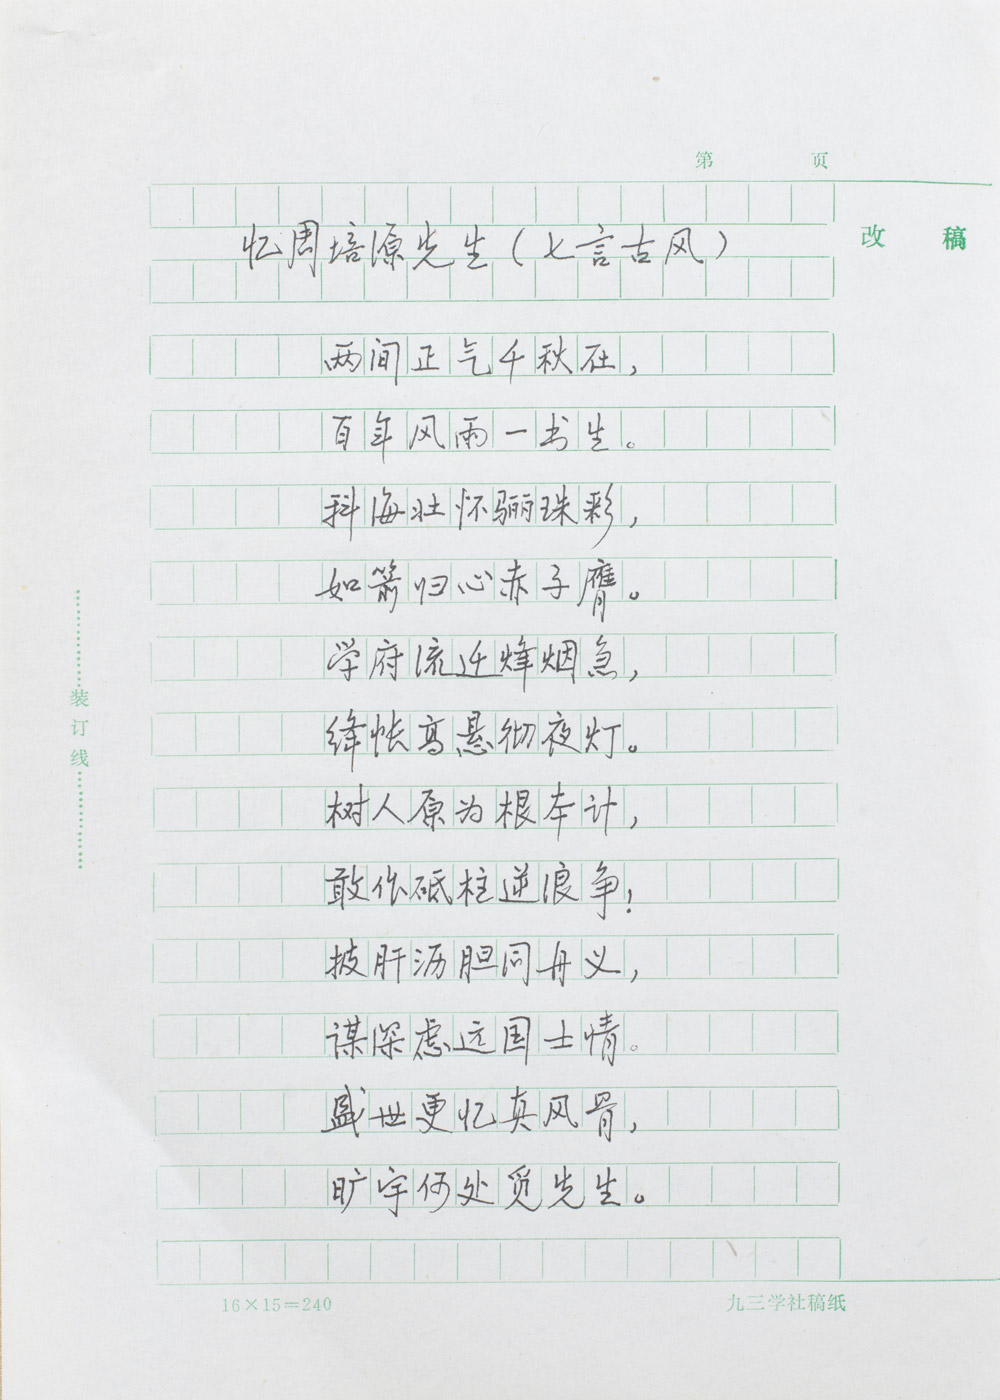 第 页
改 稿
忆周培源先生（七言古风）
两间正气千秋在，
百年风雨一书生。
科海壮怀骊珠彩，
如箭归心赤子膺。
学府流迁烽烟急，
绛帐高悬彻夜灯。
树人原为根本计，
敢作砥柱逆浪争！
披肝沥胆同舟义，
谋深虑远国士情。
盛世更忆真风骨，
旷宇何处觅先生。
装订线
16×15=240
九三学社稿纸